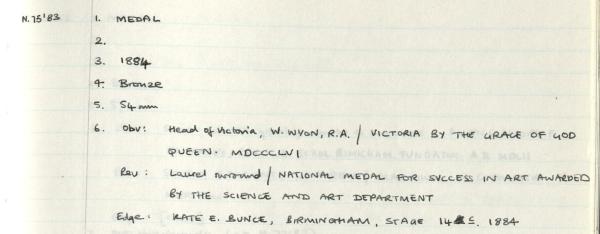 N.75'83 1. MEDAL
2.
3. 1884
4. Bronze
5. 54mm
6. Obv: Head of Victoria, W. WYON, R.A. / VICTORIA BY THE GRACE OF GOD
QUEEN. MDCCCLVI
Rev: Laurel surround / NATIONAL MEDAL FOR SVCCESS IN ART AWARDED
BY THE SCIENCE AND ART DEPARTMENT
Edge: KATE E. BUNCE, BIRMINGHAM, STAGE 14 C. 1884